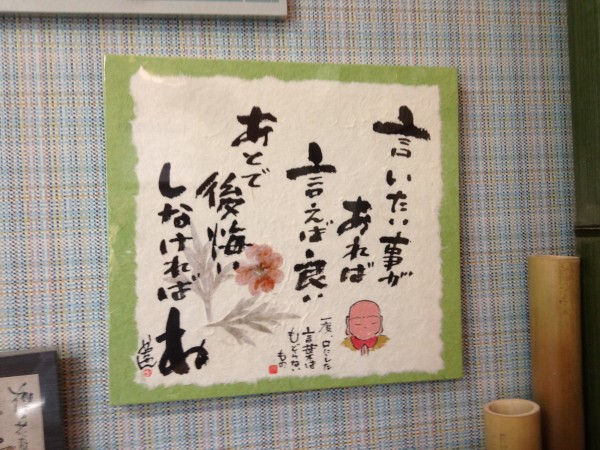 言いたい事が
あれば
言えば良い
あとで
後悔
しなければ
ね
一度、口にした
言葉は
もどらない
もの